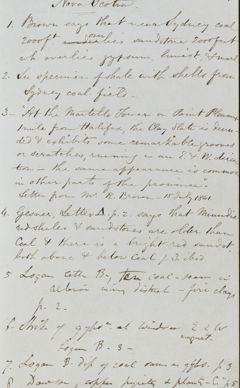 Nova Scotia
1. Brown says that near Sydney coal
2000 ft overlies sandstone 2000 feet
wh overlies gypsum, limest, & marl
2. See specimen of shale with shells from
Sydney coal field -
3 - At the Martello Tower on Point Pleasant
1 mile from Halifax, the Clay Slate is
& exhibits some remarkable grooves
or scratches, running in an E & W direc
tion - the same appearance is common
in other parts of the province.
Letter from Mr. R. Brown - 15 July 1841
4. Gesner, Letter A p. 2. says that
red shales & sandstones are older than
Coal & there is a bright red sandst
both above & below Coal p. 3.
5 Logan letter B, ten coal-seam in
mining district - fire clay
p. 2.
6 Strike of gyps^m at Windsor E & W
August.
Logan B - 3 -
7. Logan B. dip of coal same as gyps. p. 3
8 Dawson, copper pyrites & plants